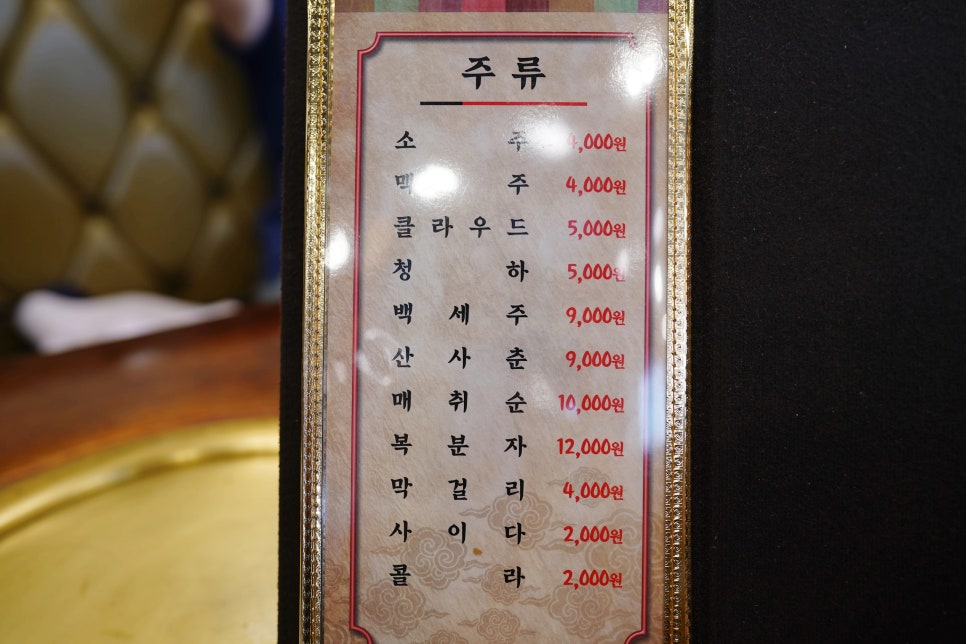 주류
소주 4,000원
맥주 4,000원
클라우드 5,000원
청하 5,000원
백세주 9,000원
산사춘 9,000원
매취순 10,000원
복분자 12,000원
막걸리 4,000원
사이다 2,000원
콜라 2,000원